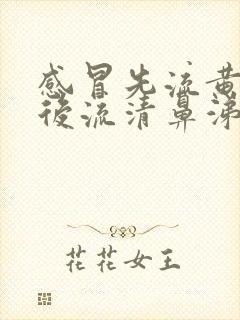 感冒先流黄
後流清鼻涕
花花女王